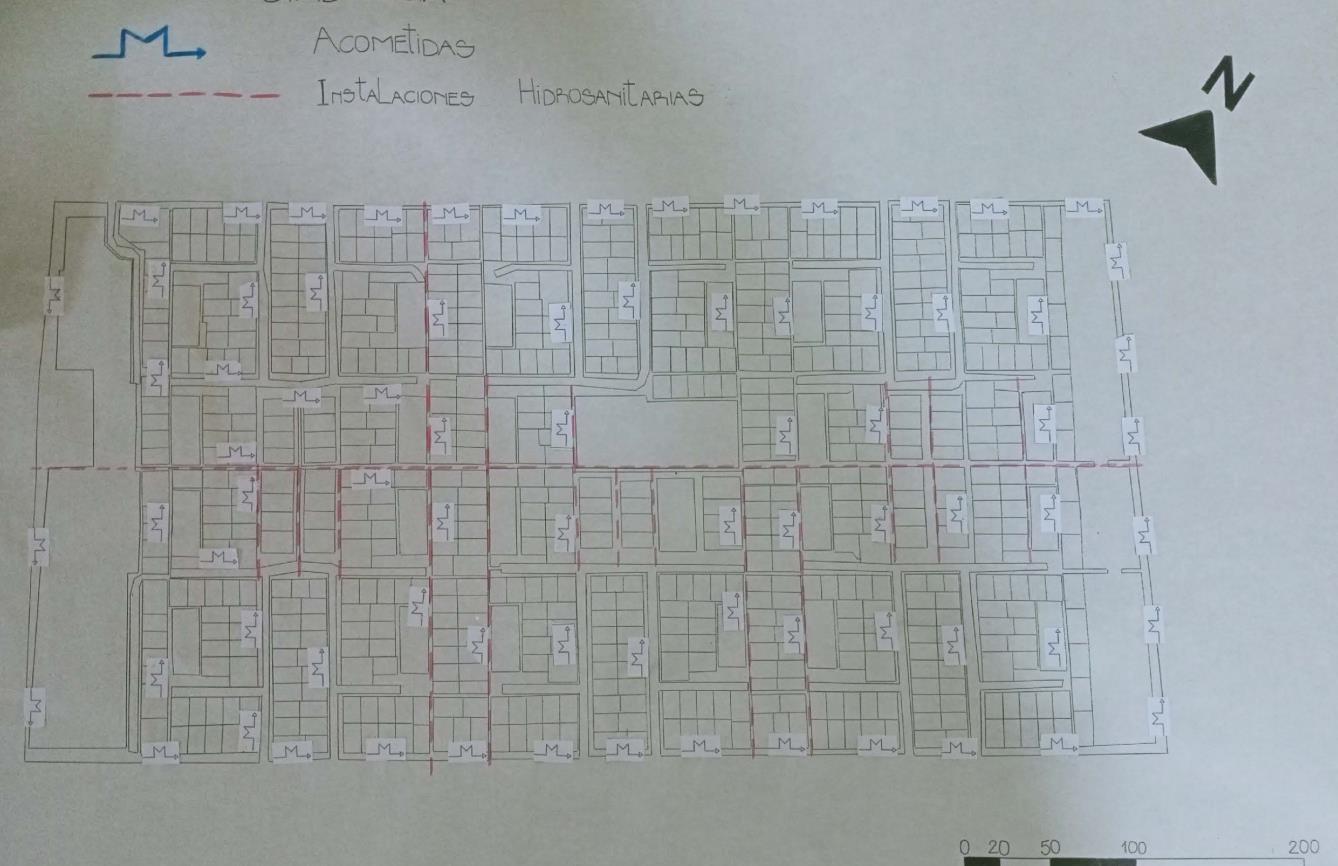 Acometidas
Instalaciones Hidrosanitarias
N
0 20 50 100 200